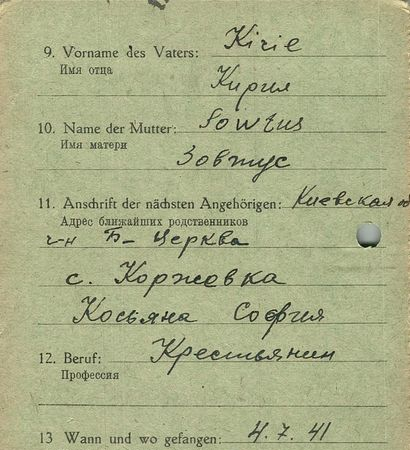 9. Vorname des Vaters: Kirie
Имя отца
Кирия
10. Name der Mutter: Sowtus
Имя матери
Зовтус
11. Anschrift der nächsten Angehörigen: Киевская об
Адрес ближайших родственников
Б-Церква
с. Коржовка
Косьяна София
12. Beruf: Крестьянин
Профессия
13 Wann und wo gefangen: 4.7.41